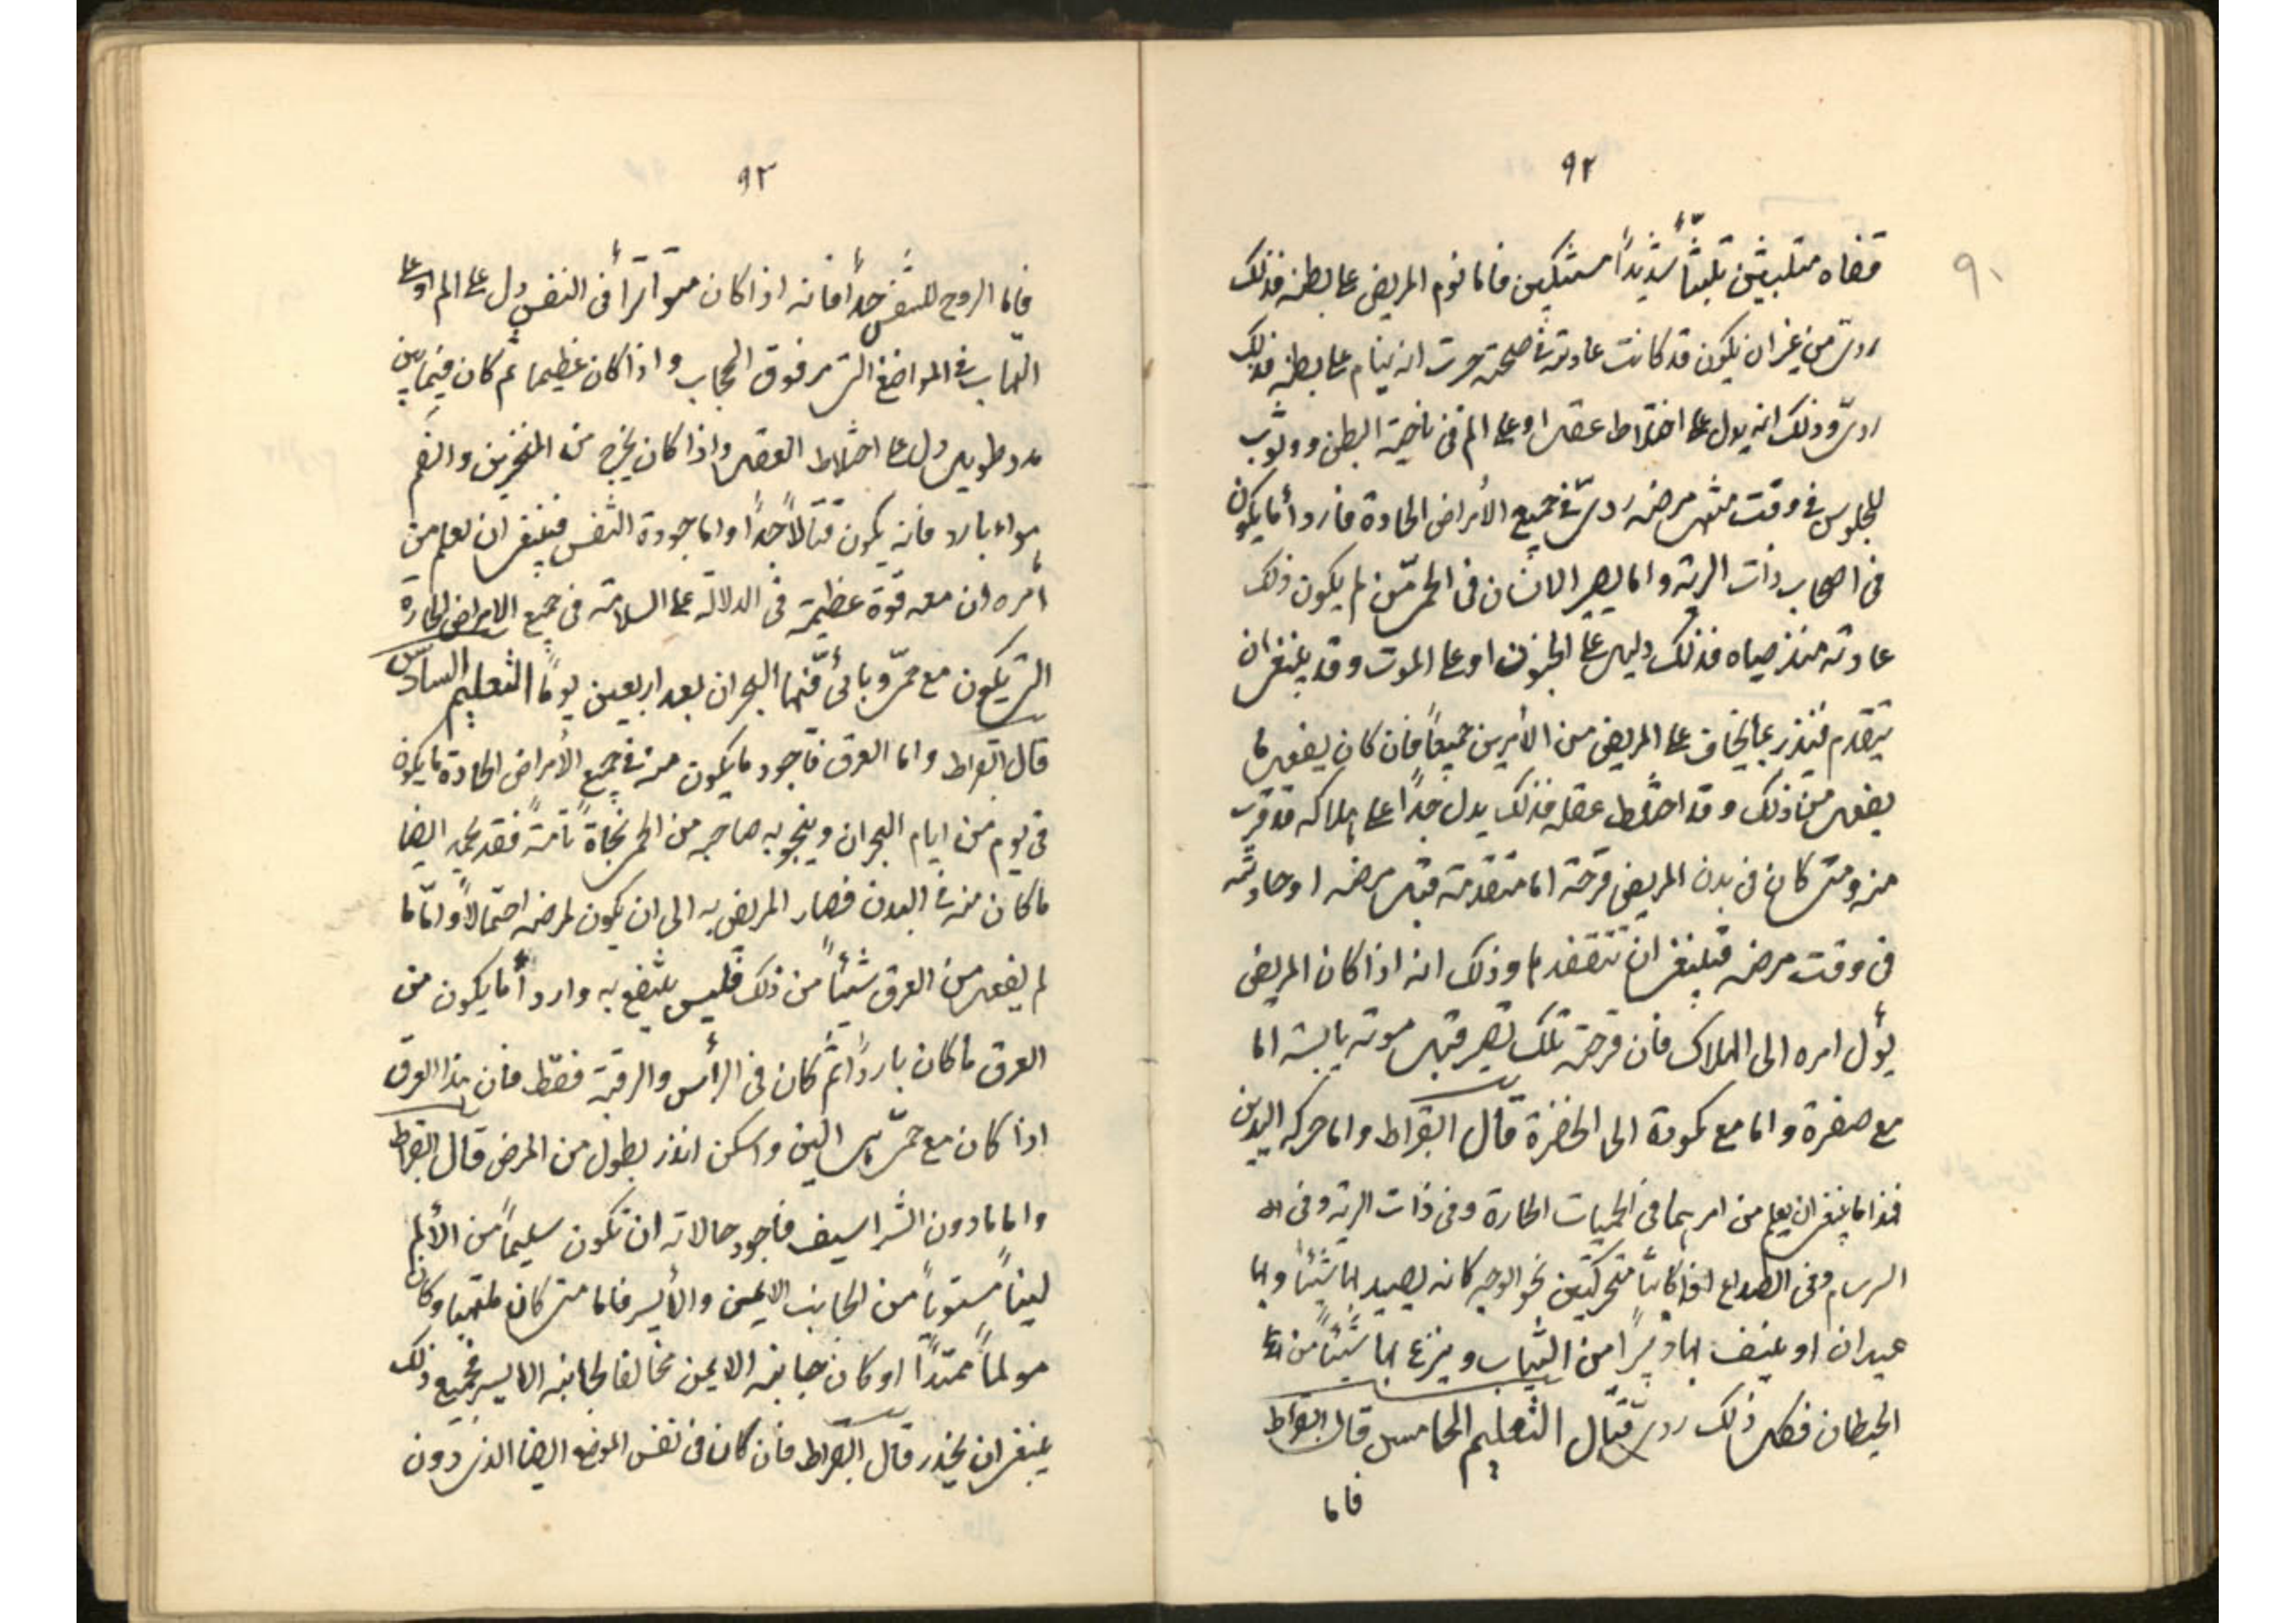 ٩٢
٩٠
قفاه متلبثين تلبثاً شديداً مشتبكين فاما نوم المريض على بطنه فذلك
ردىّ من غير ان يكون قد كانت عادته فى صحته جرت انه ينام على بطنه فذلك
ردىّ وذلك انه يدل على اختلاط عقل او على الم فى ناحية البطن ووثوب
للجلوس فى وقت منتهى مرضه ردىّ فى جميع الأمراض الحادة فاردأ ما يكون
فى اصحاب ذات الرية واما تصرير الاسنان فى الحمى من لم يكون ذلك
عادته منذ صباه فذلك دليل على الجنون او على الموت وقد ينبغى ان
يتقدم فينذر بما يخاف على المريض من الأمرين جميعاً فان كان يفعل ما
يفعل من ذلك وقد اختلط عقله فذلك يدل جداً على هلاكه قد قرب
منه ومتى كان فى بدن المريض قرحة اما متقدمة قبل مرضه او حادثة
فى وقت مرضه فينبغى ان تتفقدها وذلك انه اذا كان المريض
يؤل امره الى الهلاك فان قرحته تلك تصير قبل موته يابسة اما
مع صفرة واما مع كمودة الى الخضرة قال ابقراط واما حركة اليدين
فهذا ما ينبغى ان يعلم من امرهما فى الحميات الحارة وفى ذات الرية وفى ال
السرسام وفى الصداع اذا كانتا متحركتين نحو الوجه كانه يصيد بها شيئاً وبها
عيدان او ينتف بها زئبراً من الثياب وينزع بها شيئاً من
الحيطان فكل ذلك ردىّ قتال التعليم الخامس قال ابقراط
فاما
٩٣
فاما الروح للتنفس جداً فانه اذا كان متواتراً فى النفس دل على الم او على
التهاب فى المواضع التى فوق الحجاب واذا كان عظيما ثم كان فيما بين
مدد طويل دل على اختلاط العقل واذا كان يخرج من المنخرين والفم
هواء بارد فانه يكون قتالاً جداً واما جودة التنفس فينبغى ان يعلم من
أمره ان معه قوة عظيمة فى الدلالة على السلامة فى جميع الامراض الحارة
التى تكون مع حمى وياتى فيها البحران بعد اربعين يوماً التعليم السادس
قال ابقراط واما العرق فاجود ما يكون منه فى جميع الأمراض الحادة ما يكون
فى يوم من ايام البحران وينجو به صاحبه من الحمى نجاة تامة فقد يحمد ايضا
ما كان منه فى البدن فصار المريض به الى ان يكون لمرضه احتمالاً وامّا ما
لم يفعل من العرق شيئاً من ذلك فليس ينتفع به واردأ ما يكون من
العرق ما كان بارداً ثم كان فى الرأس والرقبة فقط فان هذا العرق
اذا كان مع حمى هى الين واسكن انذر بطول من المرض قال ابقراط
واما ما دون الشراسيف فاجود حالاته ان تكون سليماً من الألم
ليناً مستوياً من الجانب الايمن والأيسر فاما متى كان ملتهبا وكان
مولماً ممتدّاً او كان جانبه الايمن مخالفا لجانبه الايسر فجميع ذلك
ينبغى ان يحذر قال ابقراط فان كان فى نفس الموضع ايضا الذى دون